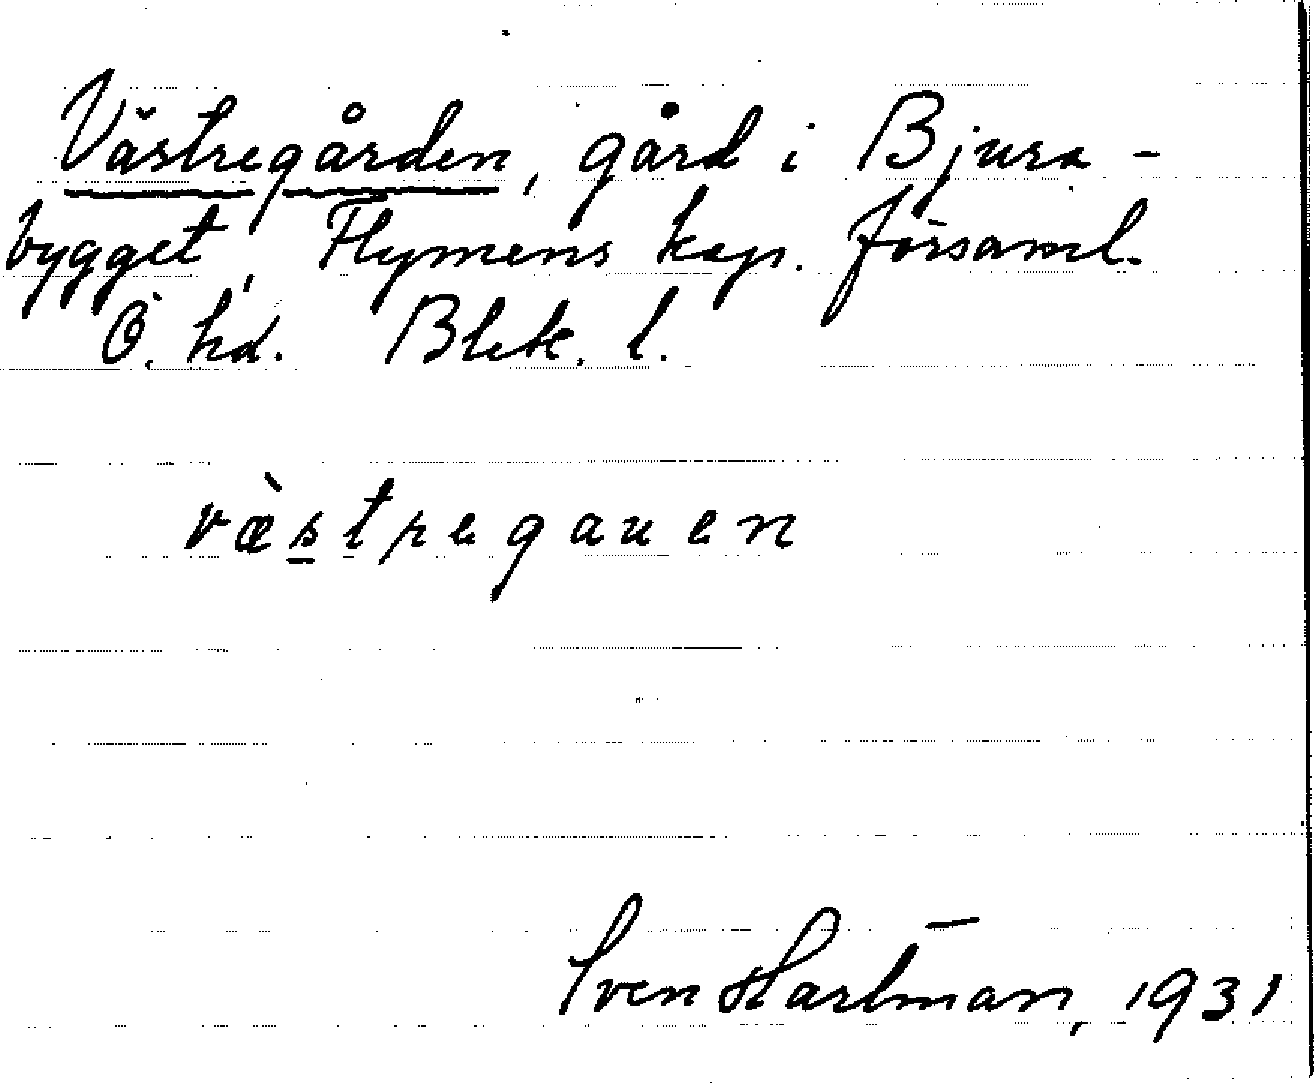 Västregården, gård i Bjura-
bygget, Flymens kap. församl.
Ö. hd. Blek. l.
væ̀stregauen
Sven Hartman, 1931